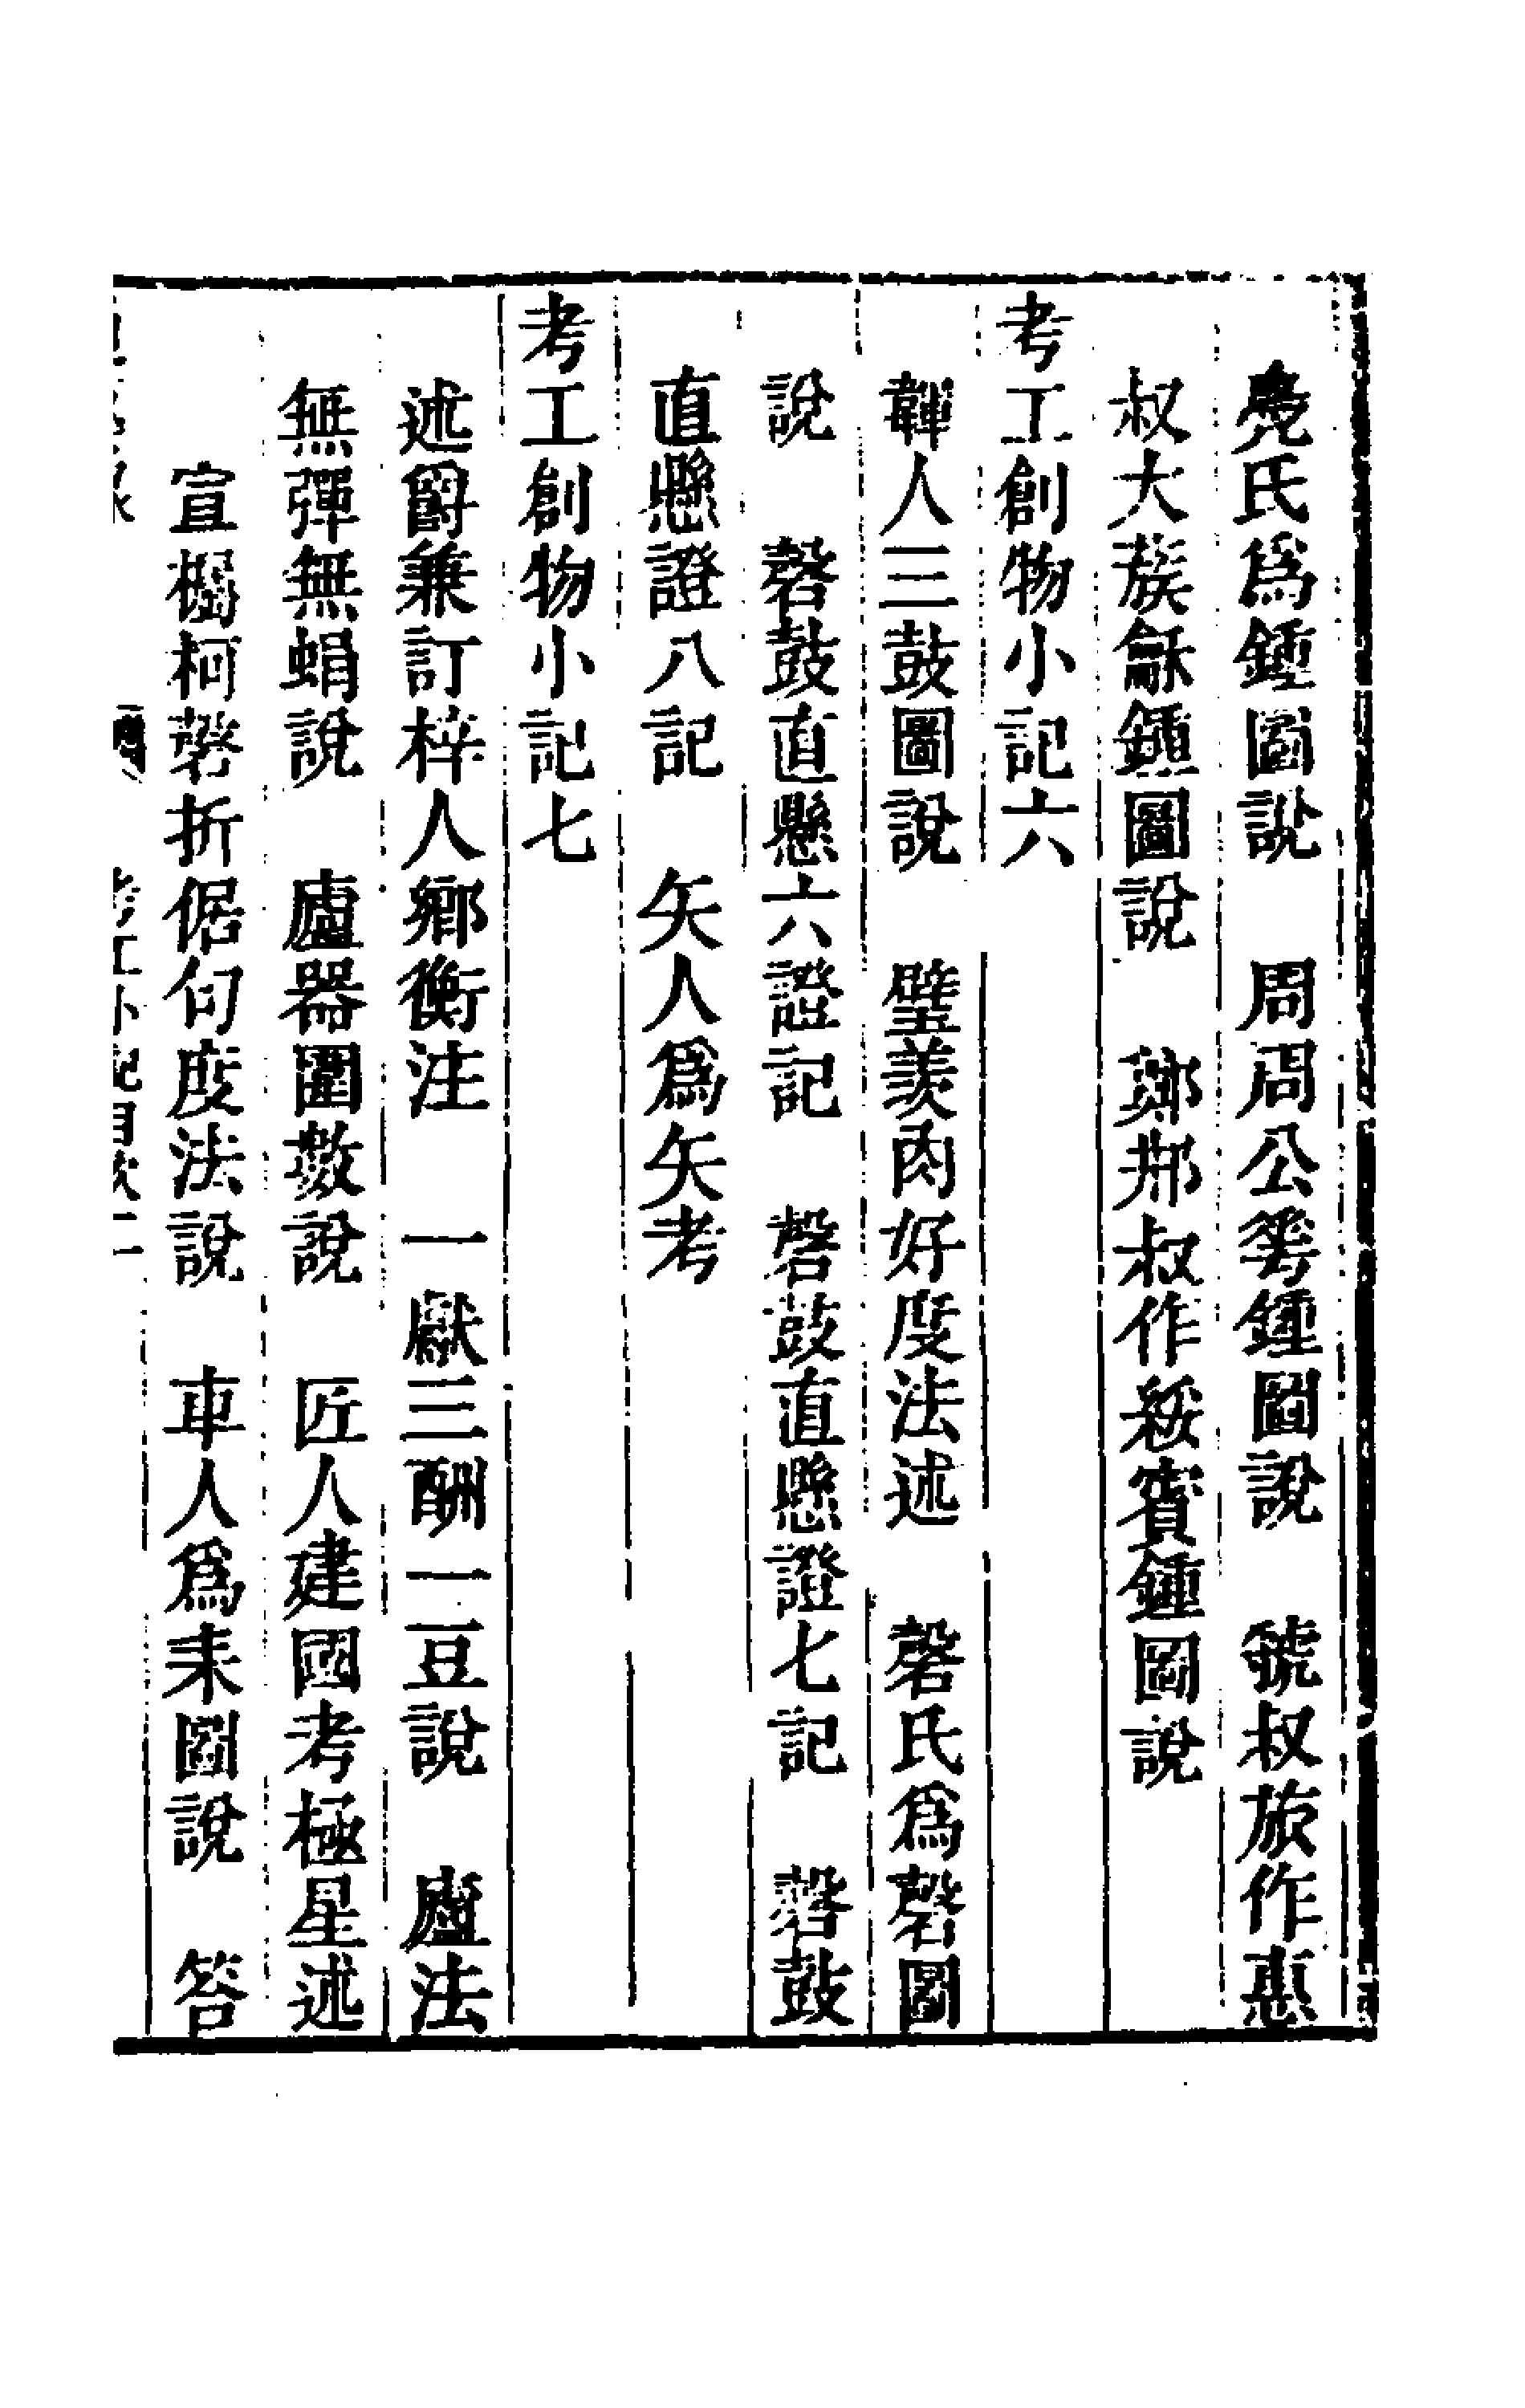 鳧氏爲鍾圖說　周周公𥌓鍾圖說　虢叔旅作惠
叔大蔟龢鍾圖說　鄭邢叔作綏賓鍾圖說
考工創物小記六
韗人三鼓圖說　璧羨肉好度法述　磬氏爲磬圖
說　磬鼓直懸六證記　磬鼓直懸證七記　磬鼓
直懸證八記　矢人爲矢考
考工創物小記七
述爵兼訂梓人鄉衡注　一獻三酬一豆說　廬法
無彈無蜎說　廬器圍數說　匠人建國考極星述
宣欘柯磬折倨句度法說　車人爲耒圖說　答